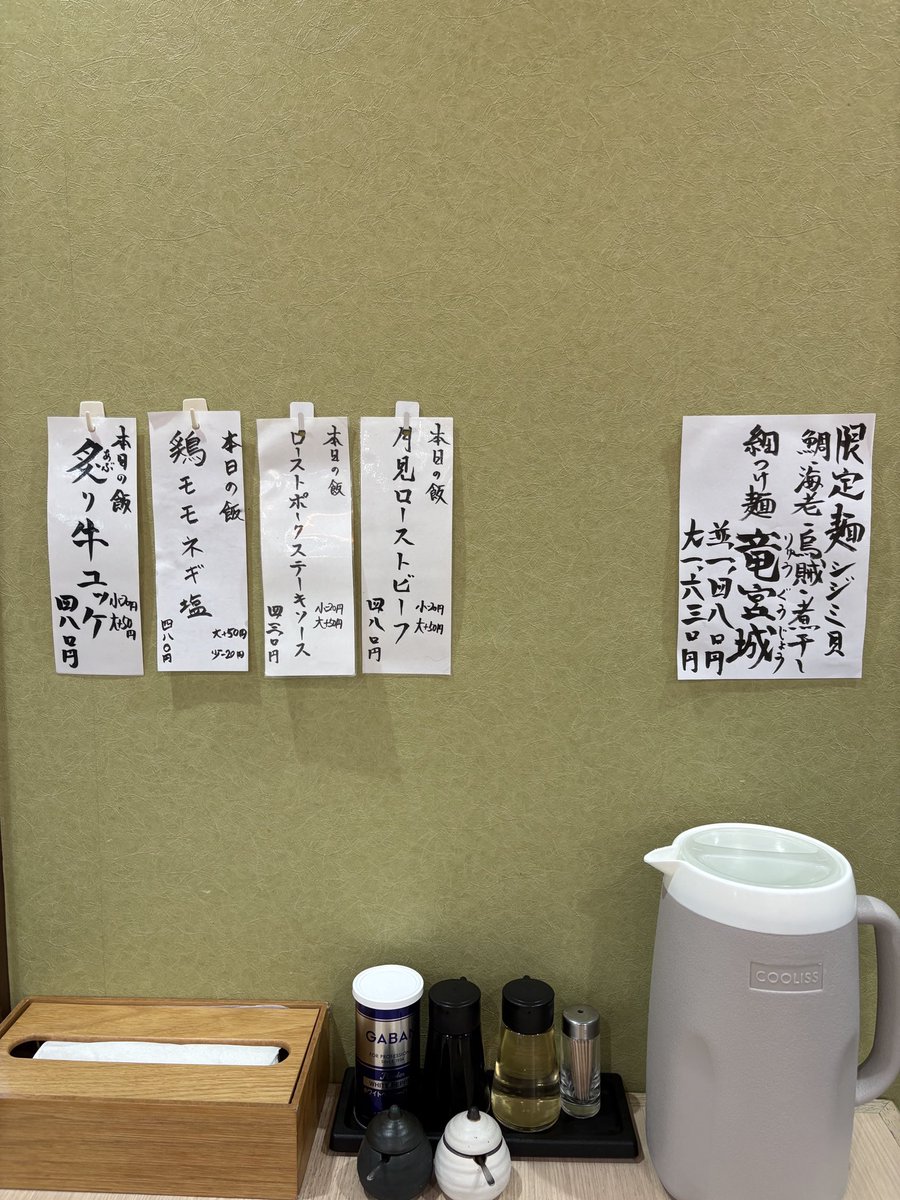 限定麺シジミ貝
鯛・海老・烏賊・煮干し
細つけ麺 竜宮城
りゅうぐうじょう
並一、四八〇円
大一、六三〇円
本日の飯
月見ローストビーフ
大+50円
四八〇円
本日の飯
ローストポークステーキソース
大+50円
四三〇円
本日の飯
鶏モモネギ塩
大+50円
四八〇円
本日の飯
炙り牛ユッケ
あぶ
大+50円
四八〇円
GABAN
FOR PROFESSIONAL
WHITE PEPPER
COOLISS